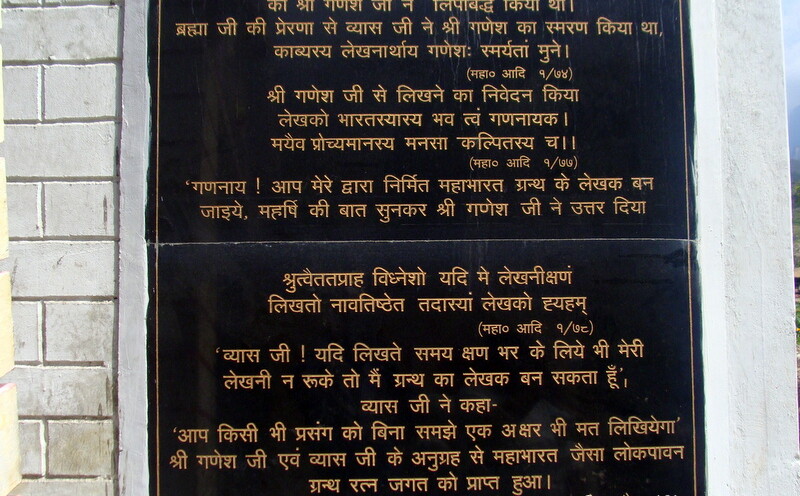 को श्री गणेश जी ने लिपिबद्ध किया था।
ब्रह्मा जी की प्रेरणा से व्यास जी ने श्री गणेश का स्मरण किया था,
काव्यस्य लेखनार्थाय गणेशः स्मर्यतां मुने।
(महा० आदि १/७४)
श्री गणेश जी से लिखने का निवेदन किया
लेखको भारतस्यास्य भव त्वं गणनायक।
मयैव प्रोच्यमानस्य मनसा कल्पितस्य च।।
(महा० आदि १/७७)
‘गणनाय ! आप मेरे द्वारा निर्मित महाभारत ग्रन्थ के लेखक बन
जाइये, महर्षि की बात सुनकर श्री गणेश जी ने उत्तर दिया
श्रुत्वैततप्राह विघ्नेशो यदि मे लेखनीक्षणं
लिखतो नावतिष्ठेत तदास्यां लेखको ह्यहम्
(महा० आदि १/७८)
‘व्यास जी ! यदि लिखते समय क्षण भर के लिये भी मेरी
लेखनी न रूके तो मैं ग्रन्थ का लेखक बन सकता हूँ’,
व्यास जी ने कहा-
‘आप किसी भी प्रसंग को बिना समझे एक अक्षर भी मत लिखियेगा’
श्री गणेश जी एवं व्यास जी के अनुग्रह से महाभारत जैसा लोकपावन
ग्रन्थ रत्न जगत को प्राप्त हुआ।